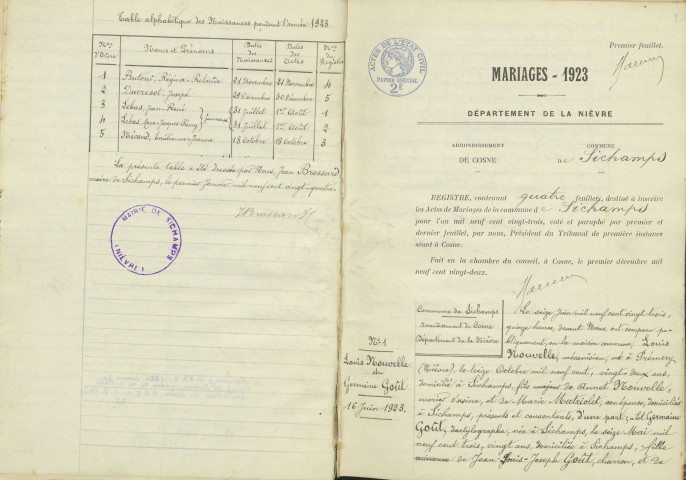 Table alphabétique des Naissances pendant l'année 1923.
Nos d'Ordre
Noms et Prénoms
Dates des Naissances
Dates des Actes
Nos du Registre
1 Régina Rolande 21 Novembre 21 Novembre 4
2 Ducresot, Joseph 29 Décembre 30 Décembre 5
3 Lebas, Jean-René 31 Juillet 1er Août 1
jumeaux
4 Lebas, Jacques 31 Juillet 1er Août 2
5 Émilienne-Jeanne 18 Octobre 19 Octobre 3
La présente table a été dressée par Nous, Jean Brossard
maire de Sichamps, le premier Janvier mil neuf cent vingt-quatre.
MAIRIE DE SICHAMPS
(NIÈVRE)
ACTES DE L'ÉTAT CIVIL
PAPIER SPÉCIAL
2F
Premier feuillet.
MARIAGES - 1923
DÉPARTEMENT DE LA NIÈVRE
ARRONDISSEMENT
DE COSNE
COMMUNE
DE Sichamps
REGISTRE, contenant quatre feuillets, destiné à inscrire
les Actes de Mariages de la commune de Sichamps
pour l'an mil neuf cent vingt-trois, coté et paraphé par premier et
dernier feuillet, par nous, Président du Tribunal de première instance
séant à Cosne.
Fait en la chambre du conseil, à Cosne, le premier décembre mil
neuf cent vingt-deux.
Commune de Sichamps
Arrondissement de Cosne
Département de la Nièvre
No 1
Louis Nouvelle
Germaine Goût
16 Juin 1923.
Le seize Juin mil neuf cent vingt trois,
quinze heures, devant Nous ont comparu pu-
bliquement, en la maison commune, Louis
Nouvelle, mécanicien, né à Prémery
(Nièvre), le seize Octobre mil neuf cent, vingt-deux ans,
domicilié à Sichamps, fils majeur de Annet Nouvelle,
ouvrier d'usine, et de Marie son épouse, domiciliés
à Sichamps, présents et consentants, d'une part; - Et Germaine
Goût, dactylographe, née à Sichamps, le seize Mai mil
neuf cent trois, vingt ans, domiciliée à Sichamps, fille
mineure de Jean-Louis-Joseph Goût, charron, et de